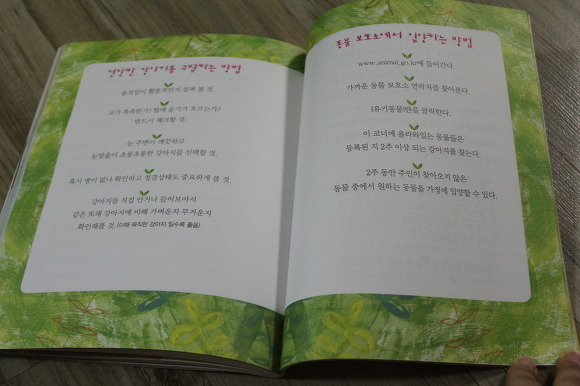 건강한 강아지를 구별하는 방법
움직임이 활동적인지 살펴 볼 것.
코가 촉촉한가? 털에 윤기가 흐르는가?
반드시 체크할 것.
눈 주변이 깨끗하고
눈망울이 초롱초롱한 강아지를 선택할 것.
혹시 병이 없나 확인하고 청결상태도 중요하게 볼 것.
강아지를 직접 안거나 들어보아서
같은 또래 강아지에 비해 가벼운지 무거운지
확인해볼 것. (이때 묵직한 강아지 일수록 좋음)
동물 보호소에서 입양하는 방법
www.animal.go.kr에 들어간다.
가까운 동물 보호소 연락처를 찾아본다.
[유기동물]란을 클릭한다.
이 코너에 올라와있는 동물들은
등록된 지 2주 이상 되는 강아지를 찾는다.
2주 동안 주인이 찾아오지 않은
동물 중에서 원하는 동물을 가정에 입양할 수 있다.